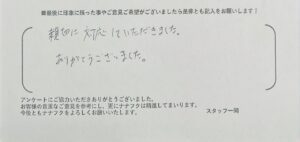 ※最後に印象に残った事やご意見ご希望がございましたら是非とも記入をお願いします!
親切に対応していただきました。
ありがとうございました。
アンケートにご協力いただきありがとうございました。
お客様の貴重なご意見を参考にし、更にナナフクは精進してまいります。
今後ともナナフクをよろしくお願いいたします。
スタッフ一同